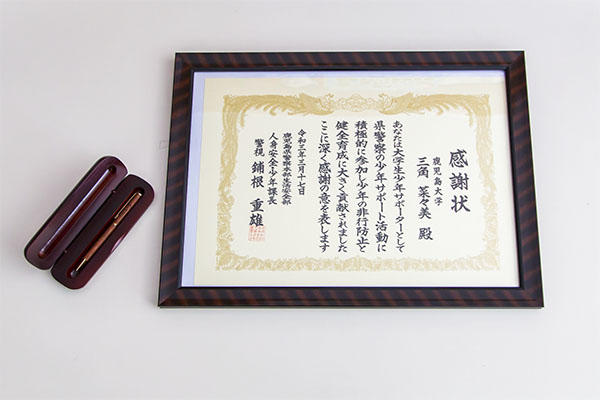 感謝状
鹿児島大学
三角 菜々美 殿
あなたは大学生少年サポーターとして
県警察の少年サポート活動に
積極的に参加し少年の非行防止と
健全育成に大きく貢献されました
ここに深く感謝の意を表します
令和三年三月十七日
鹿児島県警察本部生活安全部
人身安全少年課長
警視 鋪根 重雄